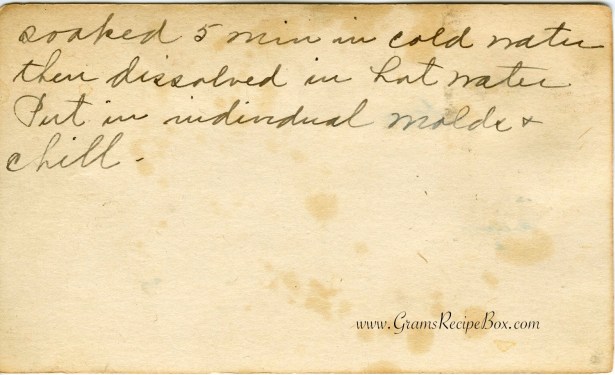 soaked 5 min in cold water
then dissolved in hot water
Put in individual molds +
chill.
www.GramsRecipeBox.com